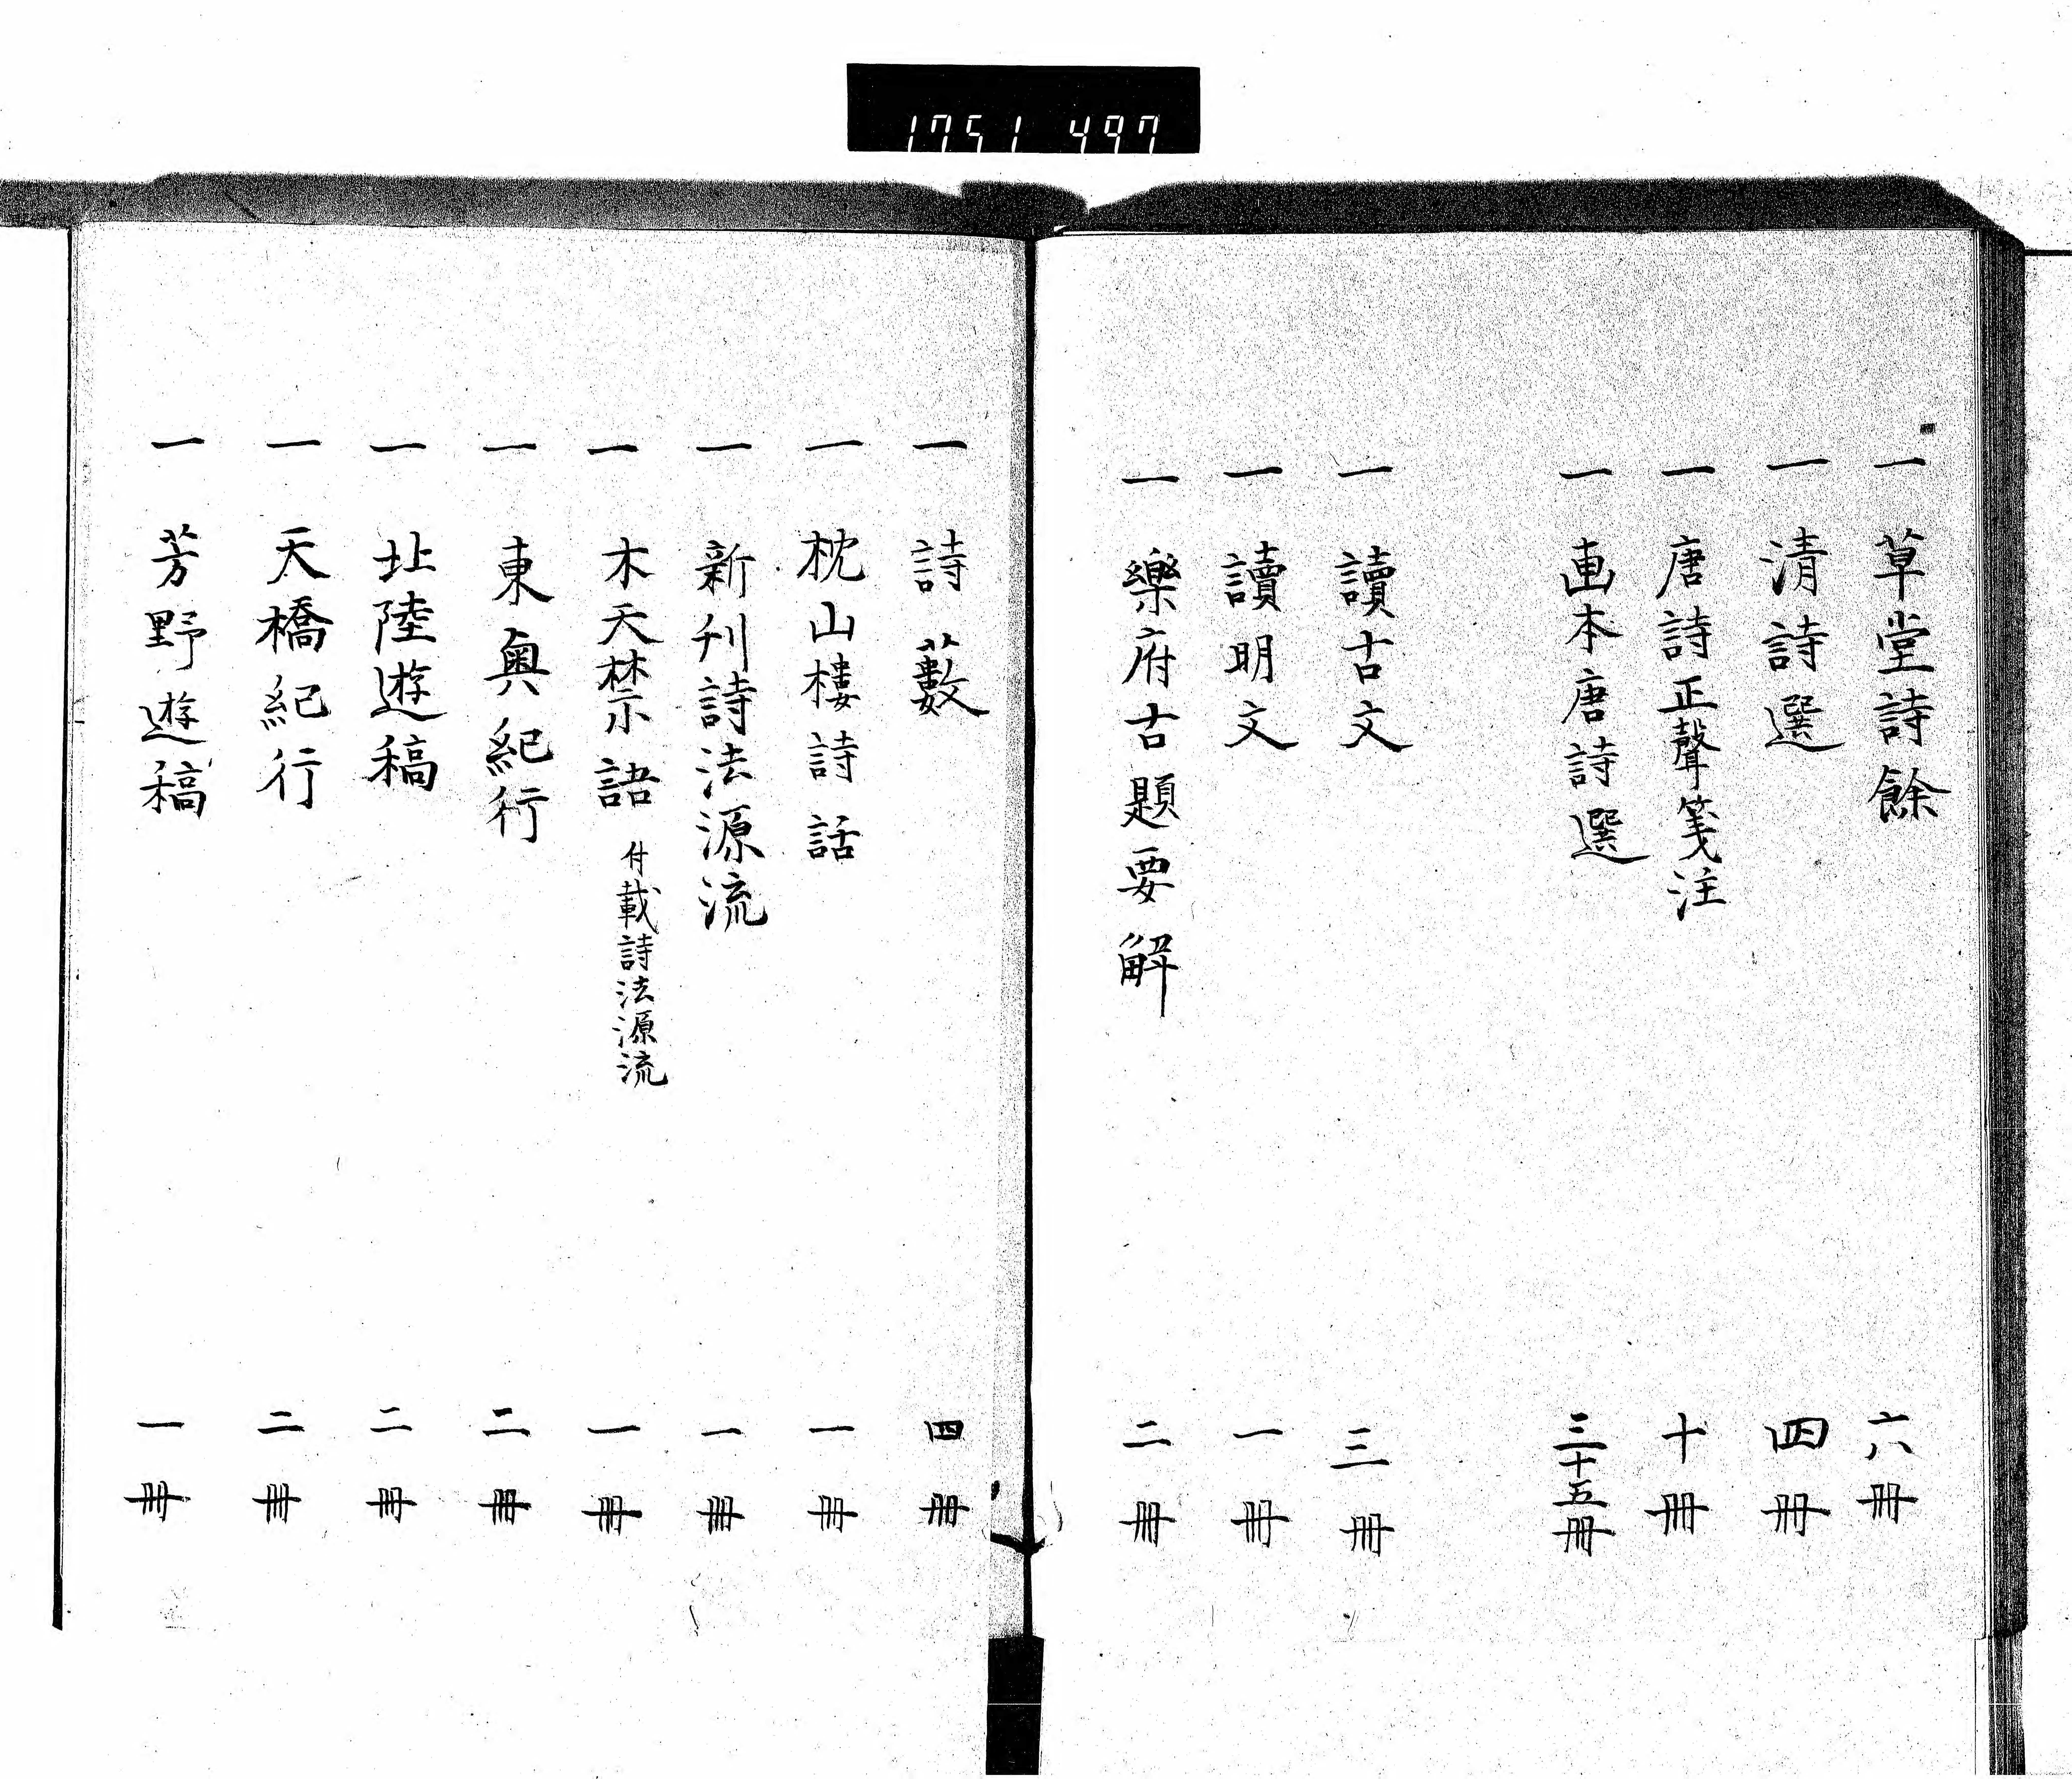 1751 497
一 草堂詩餘 六冊
一 清詩選 四冊
一 唐詩正聲箋注 十冊
一 画本唐詩選 三十五冊
一 讀古文 三冊
一 讀明文 一冊
一 樂府古題要解 二冊
一 詩藪 四冊
一 枕山樓詩話 一冊
一 新刊詩法源流 一冊
一 木天禁語 付載詩法源流 一冊
一 東奥紀行 二冊
一 北陸遊稿 二冊
一 天橋紀行 二冊
一 芳野遊稿 一冊